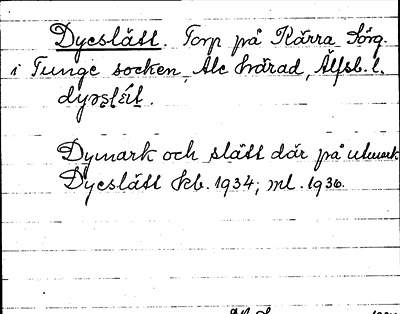 Dyeslätt. Torp på Kärra Sörg.
i Tunge socken, Ale härad, Älfsb. l.
dyəslét.
Dymark och slätt där på utmark
Dyeslätt kb. 1934; ml. 1936.